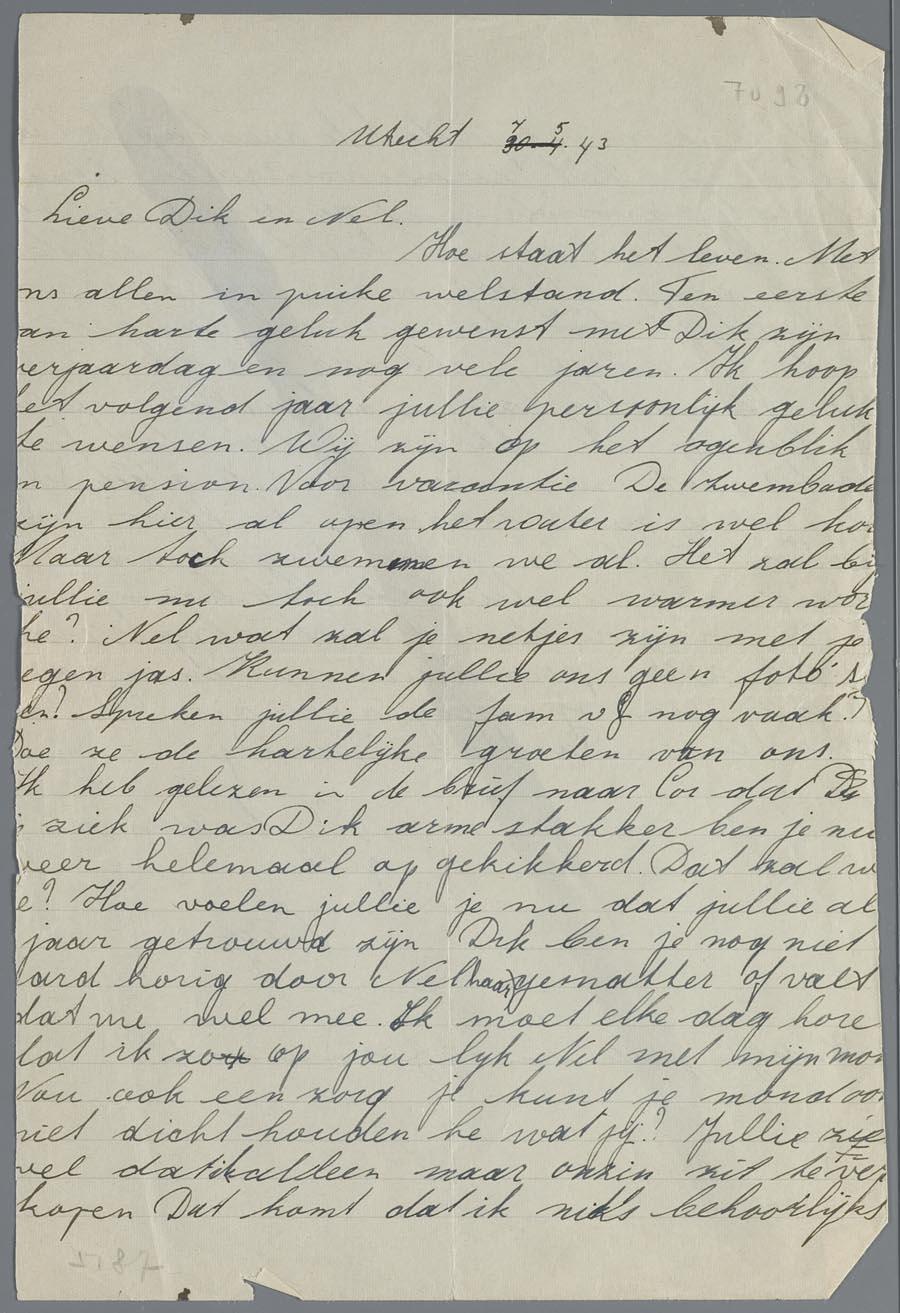 7098
Utrecht 7 5
30-4. 43
Lieve Dik en Nel.
Hoe staat het leven. Met
ns allen in puike welstand. Ten eerste
an harte geluk gewenst met Dik zijn
verjaardag en nog vele jaren. Ik hoop
et volgend jaar jullie persoonlijk geluk
te wensen. Wij zijn op het ogenblik
n pension. Voor vacantie De zwembade
zijn hier al open het water is wel kou
Maar toch zwemmen we al. Het zal bij
jullie nu toch ook wel warmer wor
he? Nel wat zal je netjes zijn met je
egen jas. Kunnen jullie ons geen foto's
en? Spreken jullie de fam vG nog vaak?
Doe ze de hartelijke groeten van ons.
Ik heb gelezen in de brief naar Cor dat
ziek was Dik arme stakker ben je nu
weer helemaal op gekikkerd. Dat zal w
e? Hoe voelen jullie je nu dat jullie al
jaar getrouwd zijn Dik ben je nog niet
ard horig door Nel haar gematter of valt
dat me wel mee. Ik moet elke dag hore
dat ik zo op jou lijk Nel met mijn mon
Nou ook een zorg je kunt je mond oo
niet dicht houden he wat jij? Jullie zie
wel dat ik alleen maar onzin zit te ver
kopen Dat komt dat ik niks behoorlijks
5187